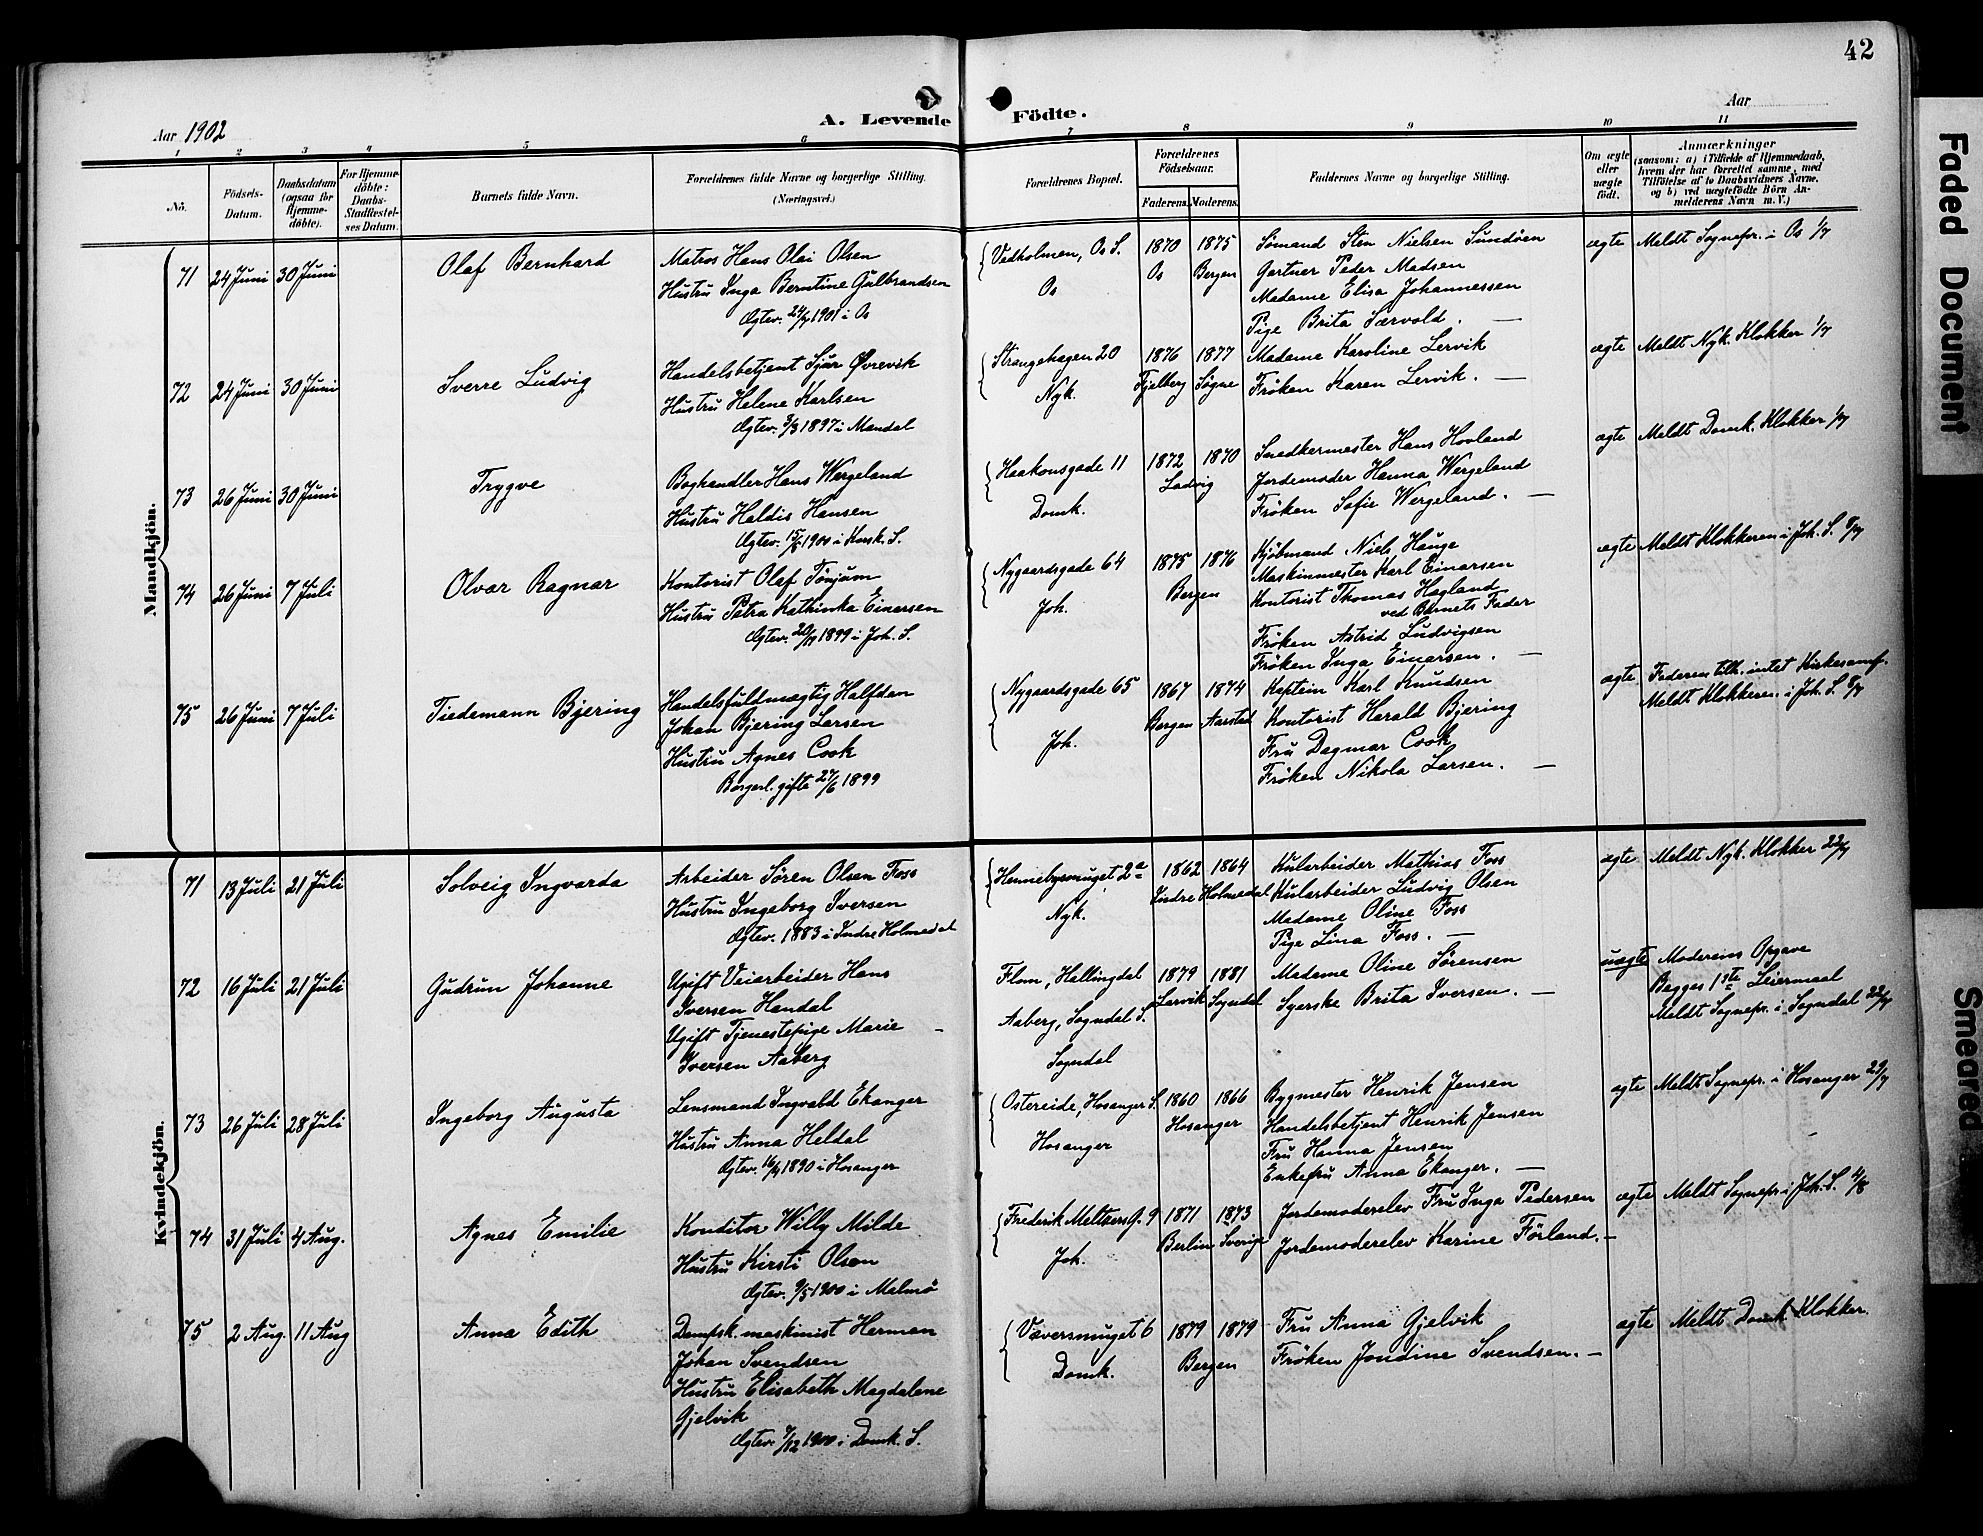 42
A. Levende Födte.
Aar 1902
Aar
1 2 3 4 5 6 7 8 9 10 11
No.
Födsels-
Datum.
Daabsdatum
(ogsaa for
Hjemme-
döbte).
For Hjemme-
döbte:
Daabs-
Stadfæstel-
ses Datum.
Barnets fulde Navn.
Forældrenes fulde Navne og borgerlige Stilling.
(Næringsvei.)
Forældrenes Bopæl.
Forældrenes
Födselsaar.
Faderens. Moderens.
Faddernes Navne og borgerlige Stilling.
Om ægte
eller
uægte
födt.
Anmærkninger
(saasom: a) i Tilfælde af Hjemmedaab,
hvem der har forrettet samme, med
Tilföielse af to Daabsvidners Navne.
og b) ved uægtefödte Börn An-
melderens Navn m. V.)
Mandkjön.
71 24 Juni 30 Juni Olaf Bernhard
Matros Hans Olai Olsen
Hustru Inga Berntine Gulbrandsen
Ægtev. 24/4 1901 i Os
Vedholmen, Os S.
Os
1870 1875
Os Bergen
Sømand Sten Nielsen Sundøen
Gartner Peder Madsen
Madame Elisa Johannessen
Pige Brita Særvold. —
ægte Meldt Sognepr. i Os 1/7
72 24 Juni 30 Juni Sverre Ludvig
Handelsbetjent Sjur Øvrevik
Hustru Helene Karlsen
Ægtev. 3/3 1897 i Mandal
Strangehagen 20
Nyk.
1876 1877
Fjelberg Søgne
Madame Karoline Lervik
Frøken Karen Lervik. —
ægte Meldt Nyk. Klokker 1/7
73 26 Juni 30 Juni Trygve
Boghandler Hans Wergeland
Hustru Haldis Hansen
Ægtev. 1900 i Korsk. S.
Haakonsgade 11
Domk.
1872 1870
Ladvig
Snedkermester Hans Hovland
Jordemoder Hanna Wergeland
Frøken Sofie Wergeland. —
ægte Meldt Domk. Klokker 1/7
74 26 Juni 7 Juli Olvar Ragnar
Kontorist Olaf Tønjum
Hustru Petra Kathinka Einersen
Ægtev. 1899 i Joh. S.
Nygaardsgade 64
Joh.
1875 1876
Bergen
Kjøbmand Niels Hauge
Maskinmester Karl Einarsen
Kontorist Thomas Hagland
ved Barnets Fader
Frøken Astrid Ludvigsen
Frøken Inga Einarsen. —
ægte Meldt Klokkeren i Joh. S. 8/7
75 26 Juni 7 Juli Tiedemann Bjering
Handelsfuldmægtig Halfdan
Johan Bjering Larsen
Hustru Agnes Cook
Borgerl. gifte 27/6 1899
Nygaardsgade 65
Joh.
1867 1874
Bergen Aarstad
Kaptein Karl Knudsen
Kontorist Harald Bjering
Fru Dagmar Cook
Frøken Nikola Larsen. —
ægte Faderen tilh. intet Kirkesamf.
Meldt Klokkeren i Joh. S. 8/7
Kvindekjön.
71 13 Juli 21 Juli Solveig Ingvarda
Arbeider Søren Olsen Foss
Hustru Ingeborg Iversen
Ægtev. 1883 i Indre Holmedal
Hennebysmuget 2a
Nyk.
1862 1864
Indre Holmedal
Kularbeider Mathias Foss
Kularbeider Ludvig Olsen
Madame Oline Foss
Pige Lina Foss. —
ægte Meldt Nyk. Klokker 22/7
72 16 Juli 21 Juli Gudrun Johanne
Ugift Veiarbeider Hans
Iversen Handal
Ugift Tjenestepige Marie —
Iversen Aaberg
Flom, Hallingdal
Aaberg, Sogndal S.
Sogndal
1879 1881
Larvik Sogndal
Madame Oline Sørensen
Syerske Brita Iversen. —
uægte Moderens Opgave
Begges 1ste Leiermaal
Meldt Sognepr. i Sogndal 22/7
73 26 Juli 28 Juli Ingeborg Augusta
Lensmand Ingvald Ekanger
Hustru Anna Heldal
Ægtev. 1890 i Hosanger
Ostereide, Hosanger S.
Hosanger
1860 1866
Hosanger
Bygmester Henrik Jensen
Handelsbetjent Henrik Jensen
Fru Hanna Jensen
Enkefru Anna Ekanger. —
ægte Meldt Sognepr. i Hosanger 29/7
74 31 Juli 4 Aug. Agnes Emilie
Konditor Willy Milde
Hustru Kirsti Olsen
Ægtev. 9/5 1900 i Malmö
Frederik Meltzers G. 9
Joh.
1871 1873
Berlin Sverige
Jordemoderelev Fru Inga Pedersen
Jordemoderelev Karine Førland. —
ægte Meldt Sognepr. i Joh. S. 4/8
75 2 Aug. 11 Aug Anna Edith
Dampsk.maskinist Herman
Johan Svendsen
Hustru Elisabeth Magdalene
Gjelvik
Ægtev. 7/12 1900 i Domk. S.
Væversmuget 6
Domk.
1879 1879
Bergen
Fru Anna Gjelvik
Frøken Jondine Svendsen. —
ægte Meldt Domk Klokker.
Faded Document
Smeared